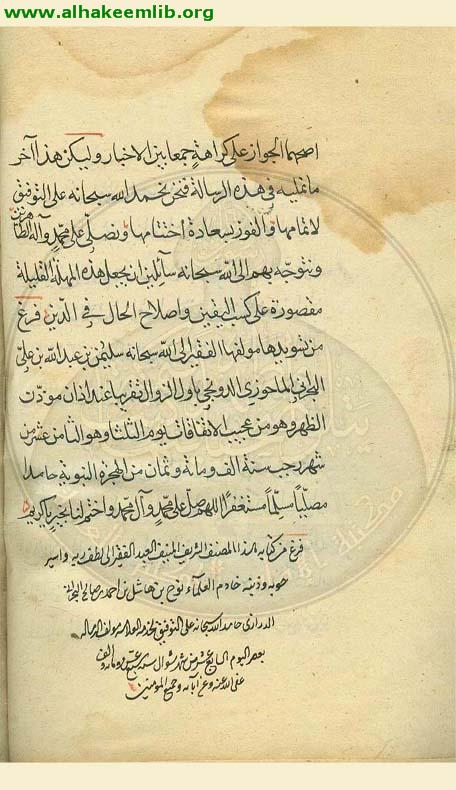 www.alhakeemlib.org
اصحهما الجواز على كراهة جمعا بين الاخبار وليكن هذا آخر
ما نمليه في هذه الرسالة فنحن نحمد الله سبحانه على التوفيق
لاتمامها والفوز بسعادة اختتامها ونصلي على محمد وآله الطاهرين
ونتوجه بهم الى الله سبحانه سائلين ان يجعل هذه المهلة القليلة
مقصورة على كسب اليقين واصلاح الحال في الدين فرغ
من تسويدها مولفها الفقير الى الله سبحانه سليمن بن عبد الله بن علي
البحراني الماحوزي الدونجي باول الزوال تقريبا عند اذان موذنت
الظهر وهو من عجيب الاتفاقات يوم الثلثا وهو الثامن عشر من
شهر رجب سنة الف ومائة وثمان من الهجرة النبوية حامدا
مصليا مسلما مستغفرا اللهم صل على محمد وآل محمد واختم لنا بخير يا كريم
فرغ من كتابة هذا المصنف الشريف المنيف العبد الفقير الى لطف ربه واسير
حوبه وذنبه خادم العلماء نوح بن هاشل بن احمد بن صالح
الدرازي حامدا لله سبحانه على التوفيق مولف الرساله
بعصر اليوم السابع عشر من شهر شوال سنة
عفى الله عنه وعن آبائه وجميع المؤمنين